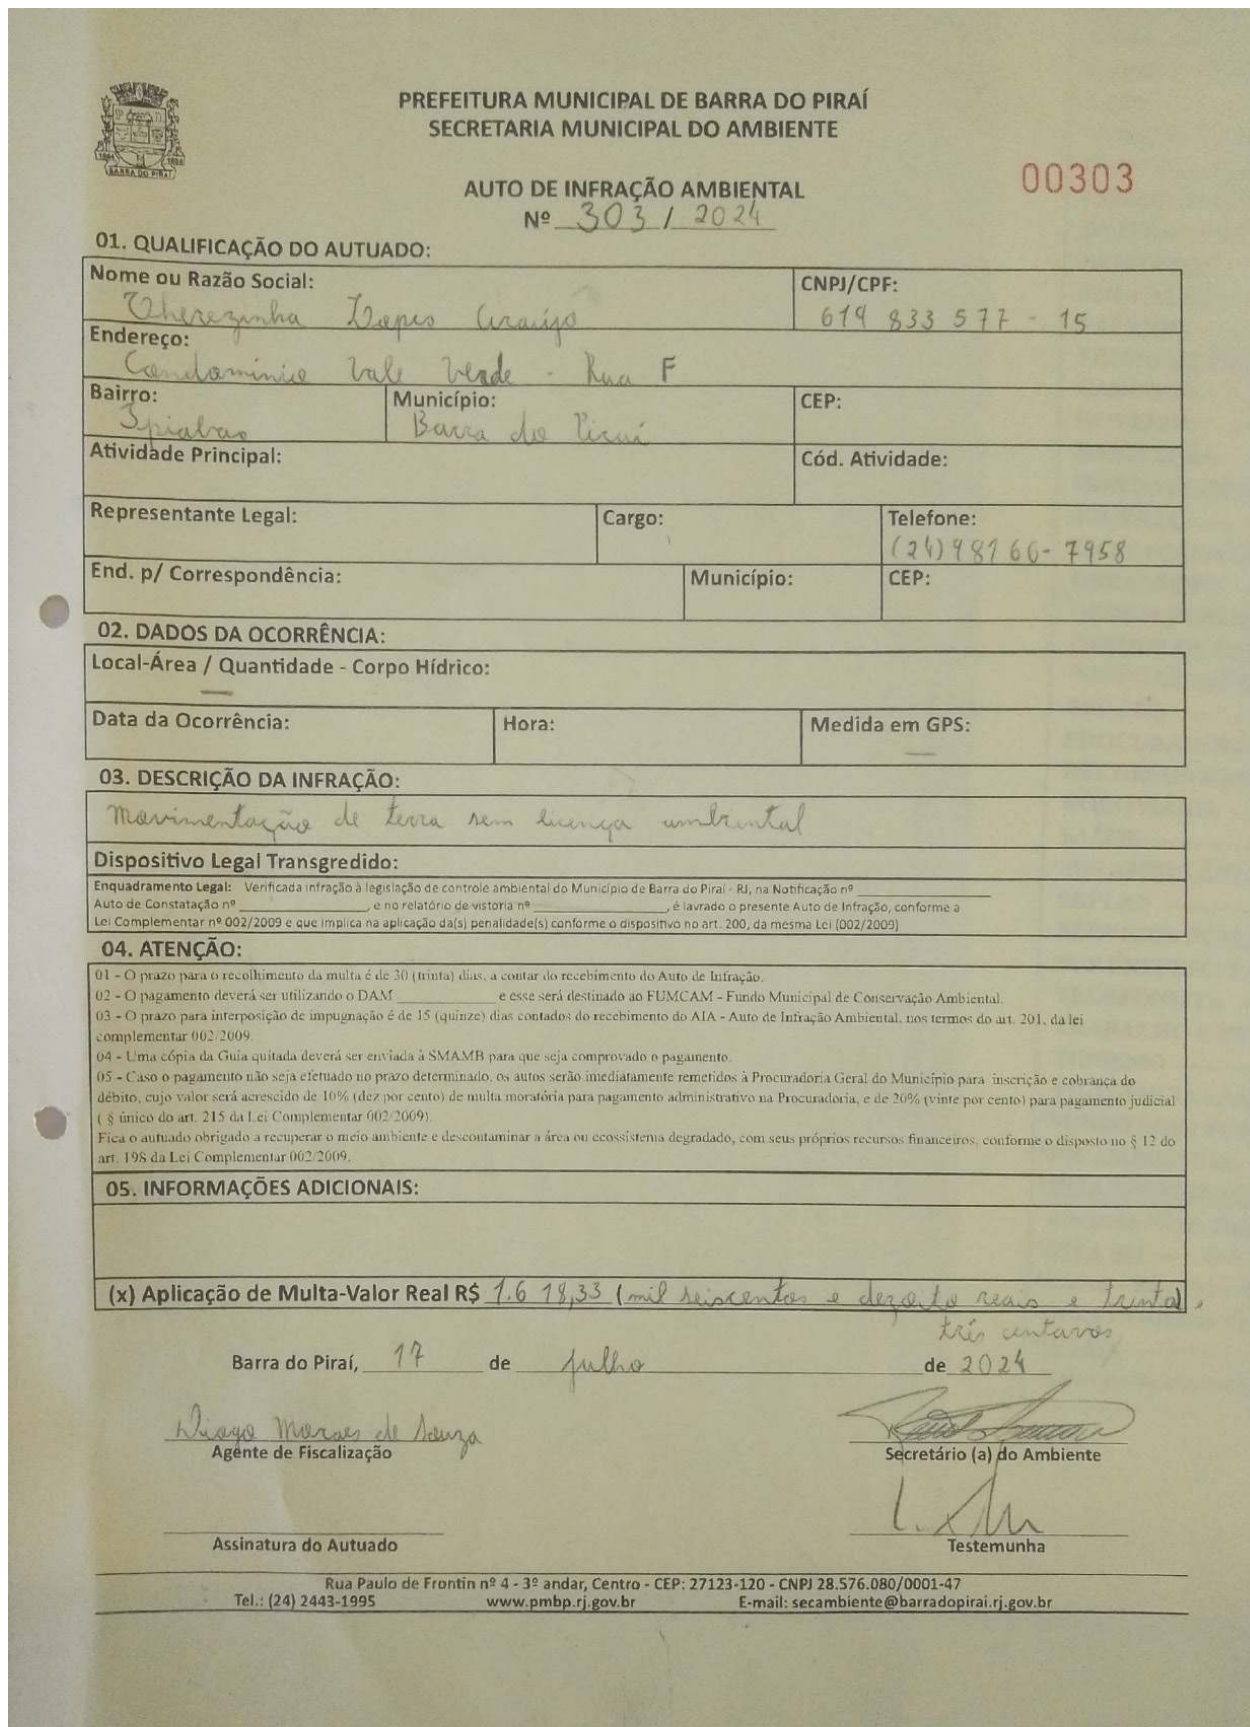 PREFEITURA MUNICIPAL DE BARRA DO PIRAÍ
SECRETARIA MUNICIPAL DO AMBIENTE
BARRA DO PIRAÍ
00303
AUTO DE INFRAÇÃO AMBIENTAL
Nº 303 / 2024
01. QUALIFICAÇÃO DO AUTUADO:
Nome ou Razão Social: CNPJ/CPF:
Therezinha Lopes Araújo 619 833 577 - 15
Endereço:
Condomínio Vale Verde - Rua F
Bairro: Município: CEP:
Ipiabas Barra do Piraí
Atividade Principal: Cód. Atividade:
Representante Legal: Cargo: Telefone:
(24) 98166-7958
End. p/ Correspondência: Município: CEP:
02. DADOS DA OCORRÊNCIA:
Local-Área / Quantidade - Corpo Hídrico:
—
Data da Ocorrência: Hora: Medida em GPS:
—
03. DESCRIÇÃO DA INFRAÇÃO:
Movimentação de terra sem licença ambiental
Dispositivo Legal Transgredido:
Enquadramento Legal: Verificada infração à legislação de controle ambiental do Município de Barra do Piraí - RJ, na Notificação nº
Auto de Constatação nº , e no relatório de vistoria nº , é lavrado o presente Auto de Infração, conforme a
Lei Complementar nº 002/2009 e que implica na aplicação da(s) penalidade(s) conforme o dispositivo no art. 200, da mesma Lei (002/2009)
04. ATENÇÃO:
01 - O prazo para o recolhimento da multa é de 30 (trinta) dias, a contar do recebimento do Auto de Infração.
02 - O pagamento deverá ser utilizando o DAM e esse será destinado ao FUMCAM - Fundo Municipal de Conservação Ambiental.
03 - O prazo para interposição de impugnação é de 15 (quinze) dias contados do recebimento do AIA - Auto de Infração Ambiental, nos termos do art. 201, da lei
complementar 002/2009.
04 - Uma cópia da Guia quitada deverá ser enviada à SMAMB para que seja comprovado o pagamento.
05 - Caso o pagamento não seja efetuado no prazo determinado, os autos serão imediatamente remetidos à Procuradoria Geral do Município para inscrição e cobrança do
débito, cujo valor será acrescido de 10% (dez por cento) de multa moratória para pagamento administrativo na Procuradoria, e de 20% (vinte por cento) para pagamento judicial
( § único do art. 215 da Lei Complementar 002/2009).
Fica o autuado obrigado a recuperar o meio ambiente e descontaminar a área ou ecossistema degradado, com seus próprios recursos financeiros, conforme o disposto no § 12 do
art. 198 da Lei Complementar 002/2009.
05. INFORMAÇÕES ADICIONAIS:
(x) Aplicação de Multa-Valor Real R$ 1.618,33 (mil seiscentos e dezoito reais e trinta
três centavos
Barra do Piraí, 17 de julho de 2024
Diogo Moraes de Souza
Agente de Fiscalização Secretário (a) do Ambiente
Assinatura do Autuado Testemunha
Rua Paulo de Frontin nº 4 - 3º andar, Centro - CEP: 27123-120 - CNPJ 28.576.080/0001-47
Tel.: (24) 2443-1995 www.pmbp.rj.gov.br E-mail: secambiente@barradopirai.rj.gov.br